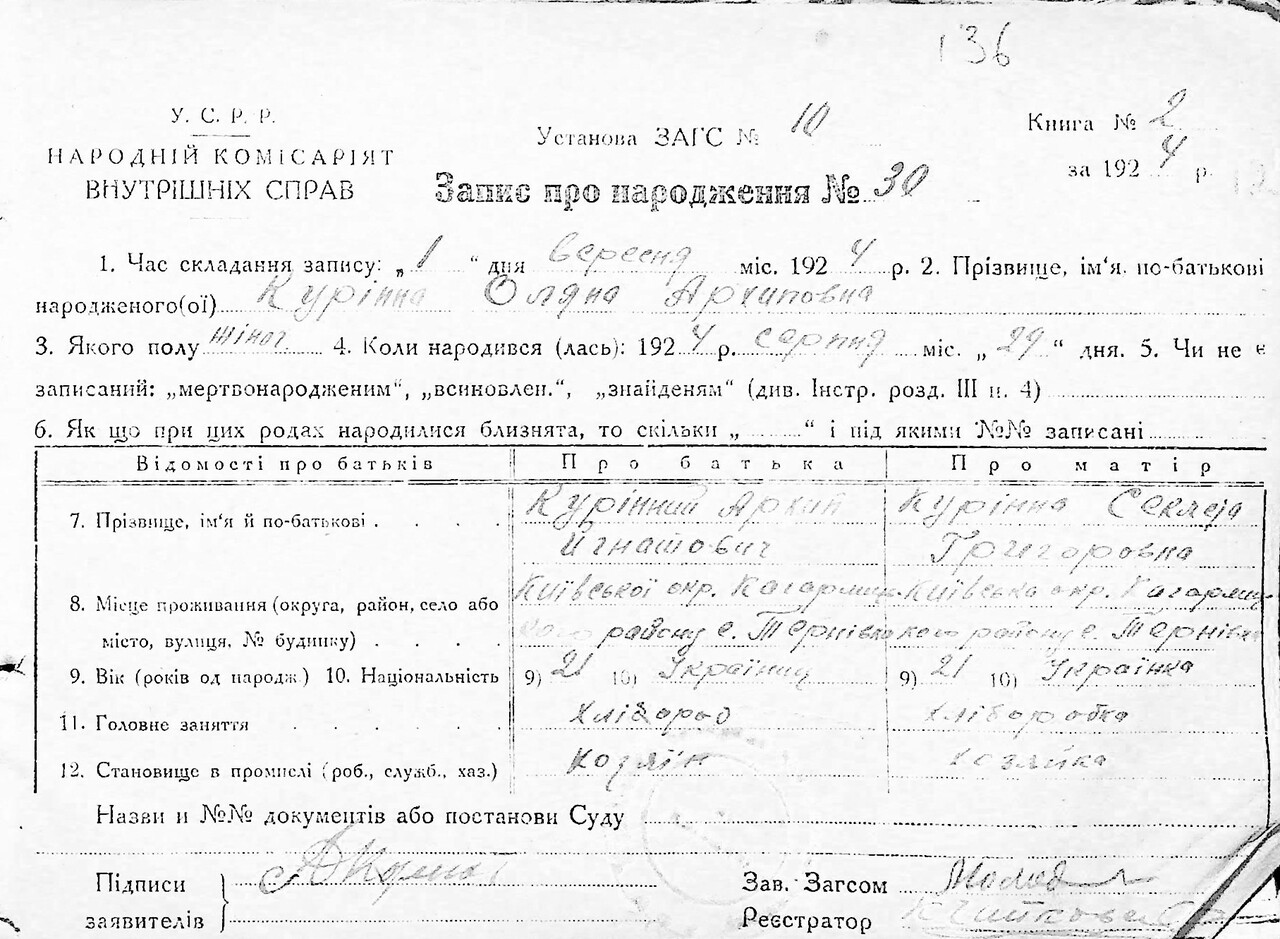 136
У. С. Р. Р.
НАРОДНІЙ КОМІСАРІЯТ
ВНУТРІШНІХ СПРАВ
Установа ЗАГС № 10
Книга № 2
за 1924 р.
Запис про народження № 30
1. Час складання запису: „1“ дня вересня міс. 1924 р. 2. Прізвище, ім'я, по-батькові
народженого(ої) Курінна Оляна Архиповна
3. Якого полу жіноч 4. Коли народився (лась): 1924 р. серпня міс. „29“ дня. 5. Чи не є
записаний: „мертвонародженим“, „всиновлен.“, „знайденям“ (див. Інстр. розд. III п. 4)
6. Як що при цих родах народилися близнята, то скільки „ “ і під якими №№ записані
Відомості про батьків Про батька Про матір
7. Прізвище, ім'я й по-батькові . . . . Курінний Архип Курінна Секлета
Игнатович Григоровна
8. Місце проживання (округа, район, село або Київської окр. Кагарлиц- Київська окр. Кагарлиц-
місто, вулиця, № будинку) . . . . кого району с. Тернівка кого району с. Тернівка
9. Вік (років од народж.) 10. Національність 9) 21 10) Українец 9) 21 10) Українка
11. Головне заняття . . . . . Хлібороб хліборобка
12. Становище в промислі (роб., служб., хаз.) Козяїн хозяйка
Назви и №№ документів або постанови Суду
Підписи
заявителів
Зав. Загсом
Реєстратор